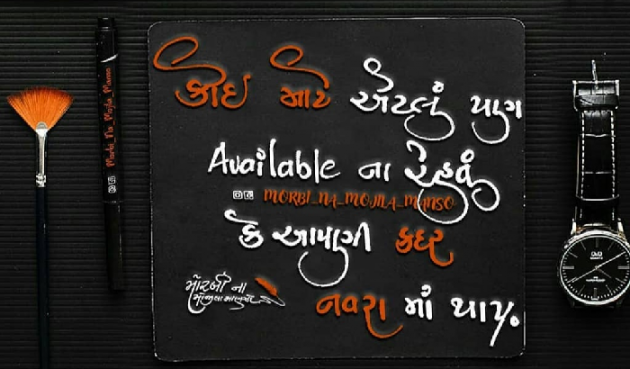 કોઈ માટે એટલું પણ
Available ના રેહવું
MORBI_NA_MOJILA_MANSO
કે આપણી કદર
મોરબી ના
મોજીલા માણસો
નવરા માં થાય.
Morbi_Na_Mojila_Manso
Q&Q